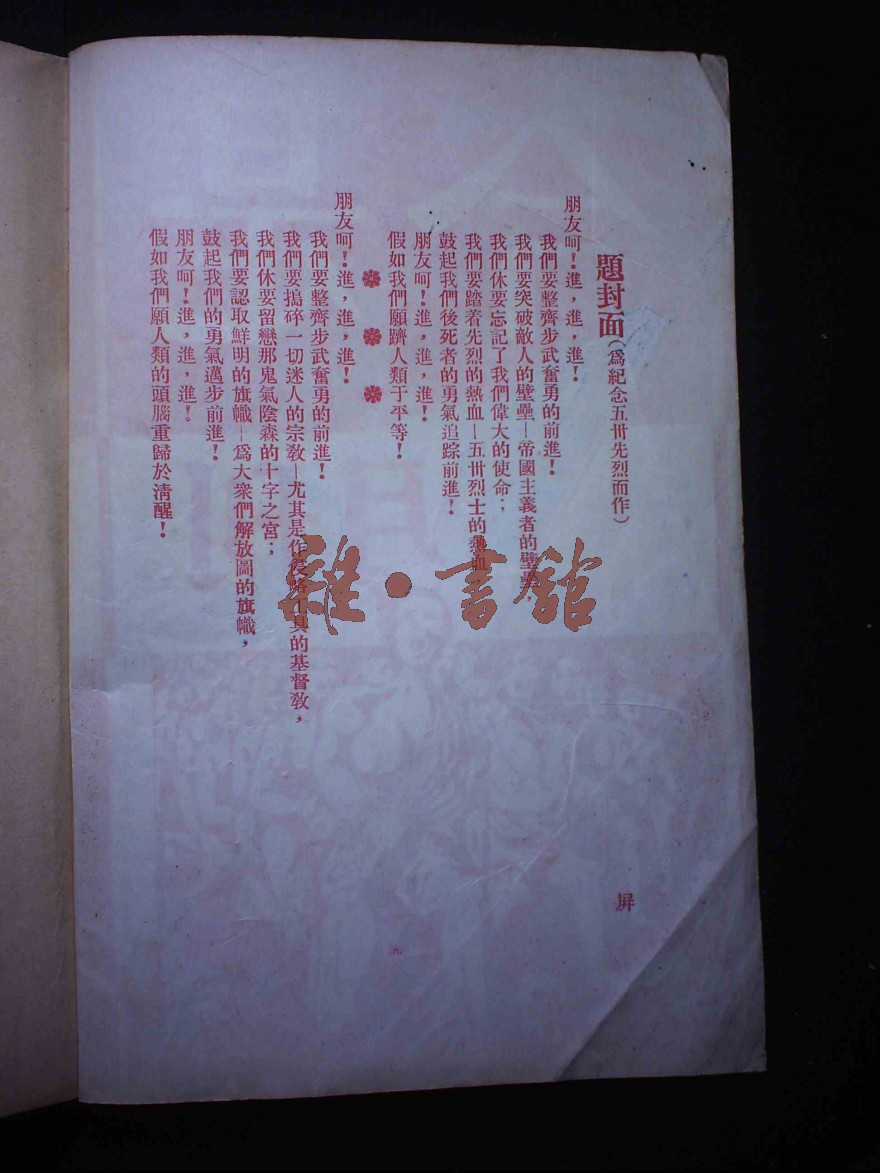 題封面（爲紀念五卅先烈而作）
屏
朋友呵！進，進，進！
我們要整齊步武奮勇的前進！
我們要突破敵人的壁壘—帝國主義者的壁壘，
我們休要忘記了我們偉大的使命；
我們要踏着先烈的熱血—五卅烈士的熱血
鼓起我們後死者的勇氣追踪前進！
朋友呵！進，進，進！
假如我們願躋人類于平等！
朋友呵！進，進，進！
我們要整齊步武奮勇的前進！
我們要搗碎一切迷人的宗敎—尤其是作侵略工具的基督敎，
我們休要留戀那鬼氣陰森的十字之宮；
我們要認取鮮明的旗幟—爲大衆們解放圖的旗幟，
鼓起我們的勇氣邁步前進！
朋友呵！進，進，進！
假如我們願人類的頭腦重歸於淸醒！
雜·書館